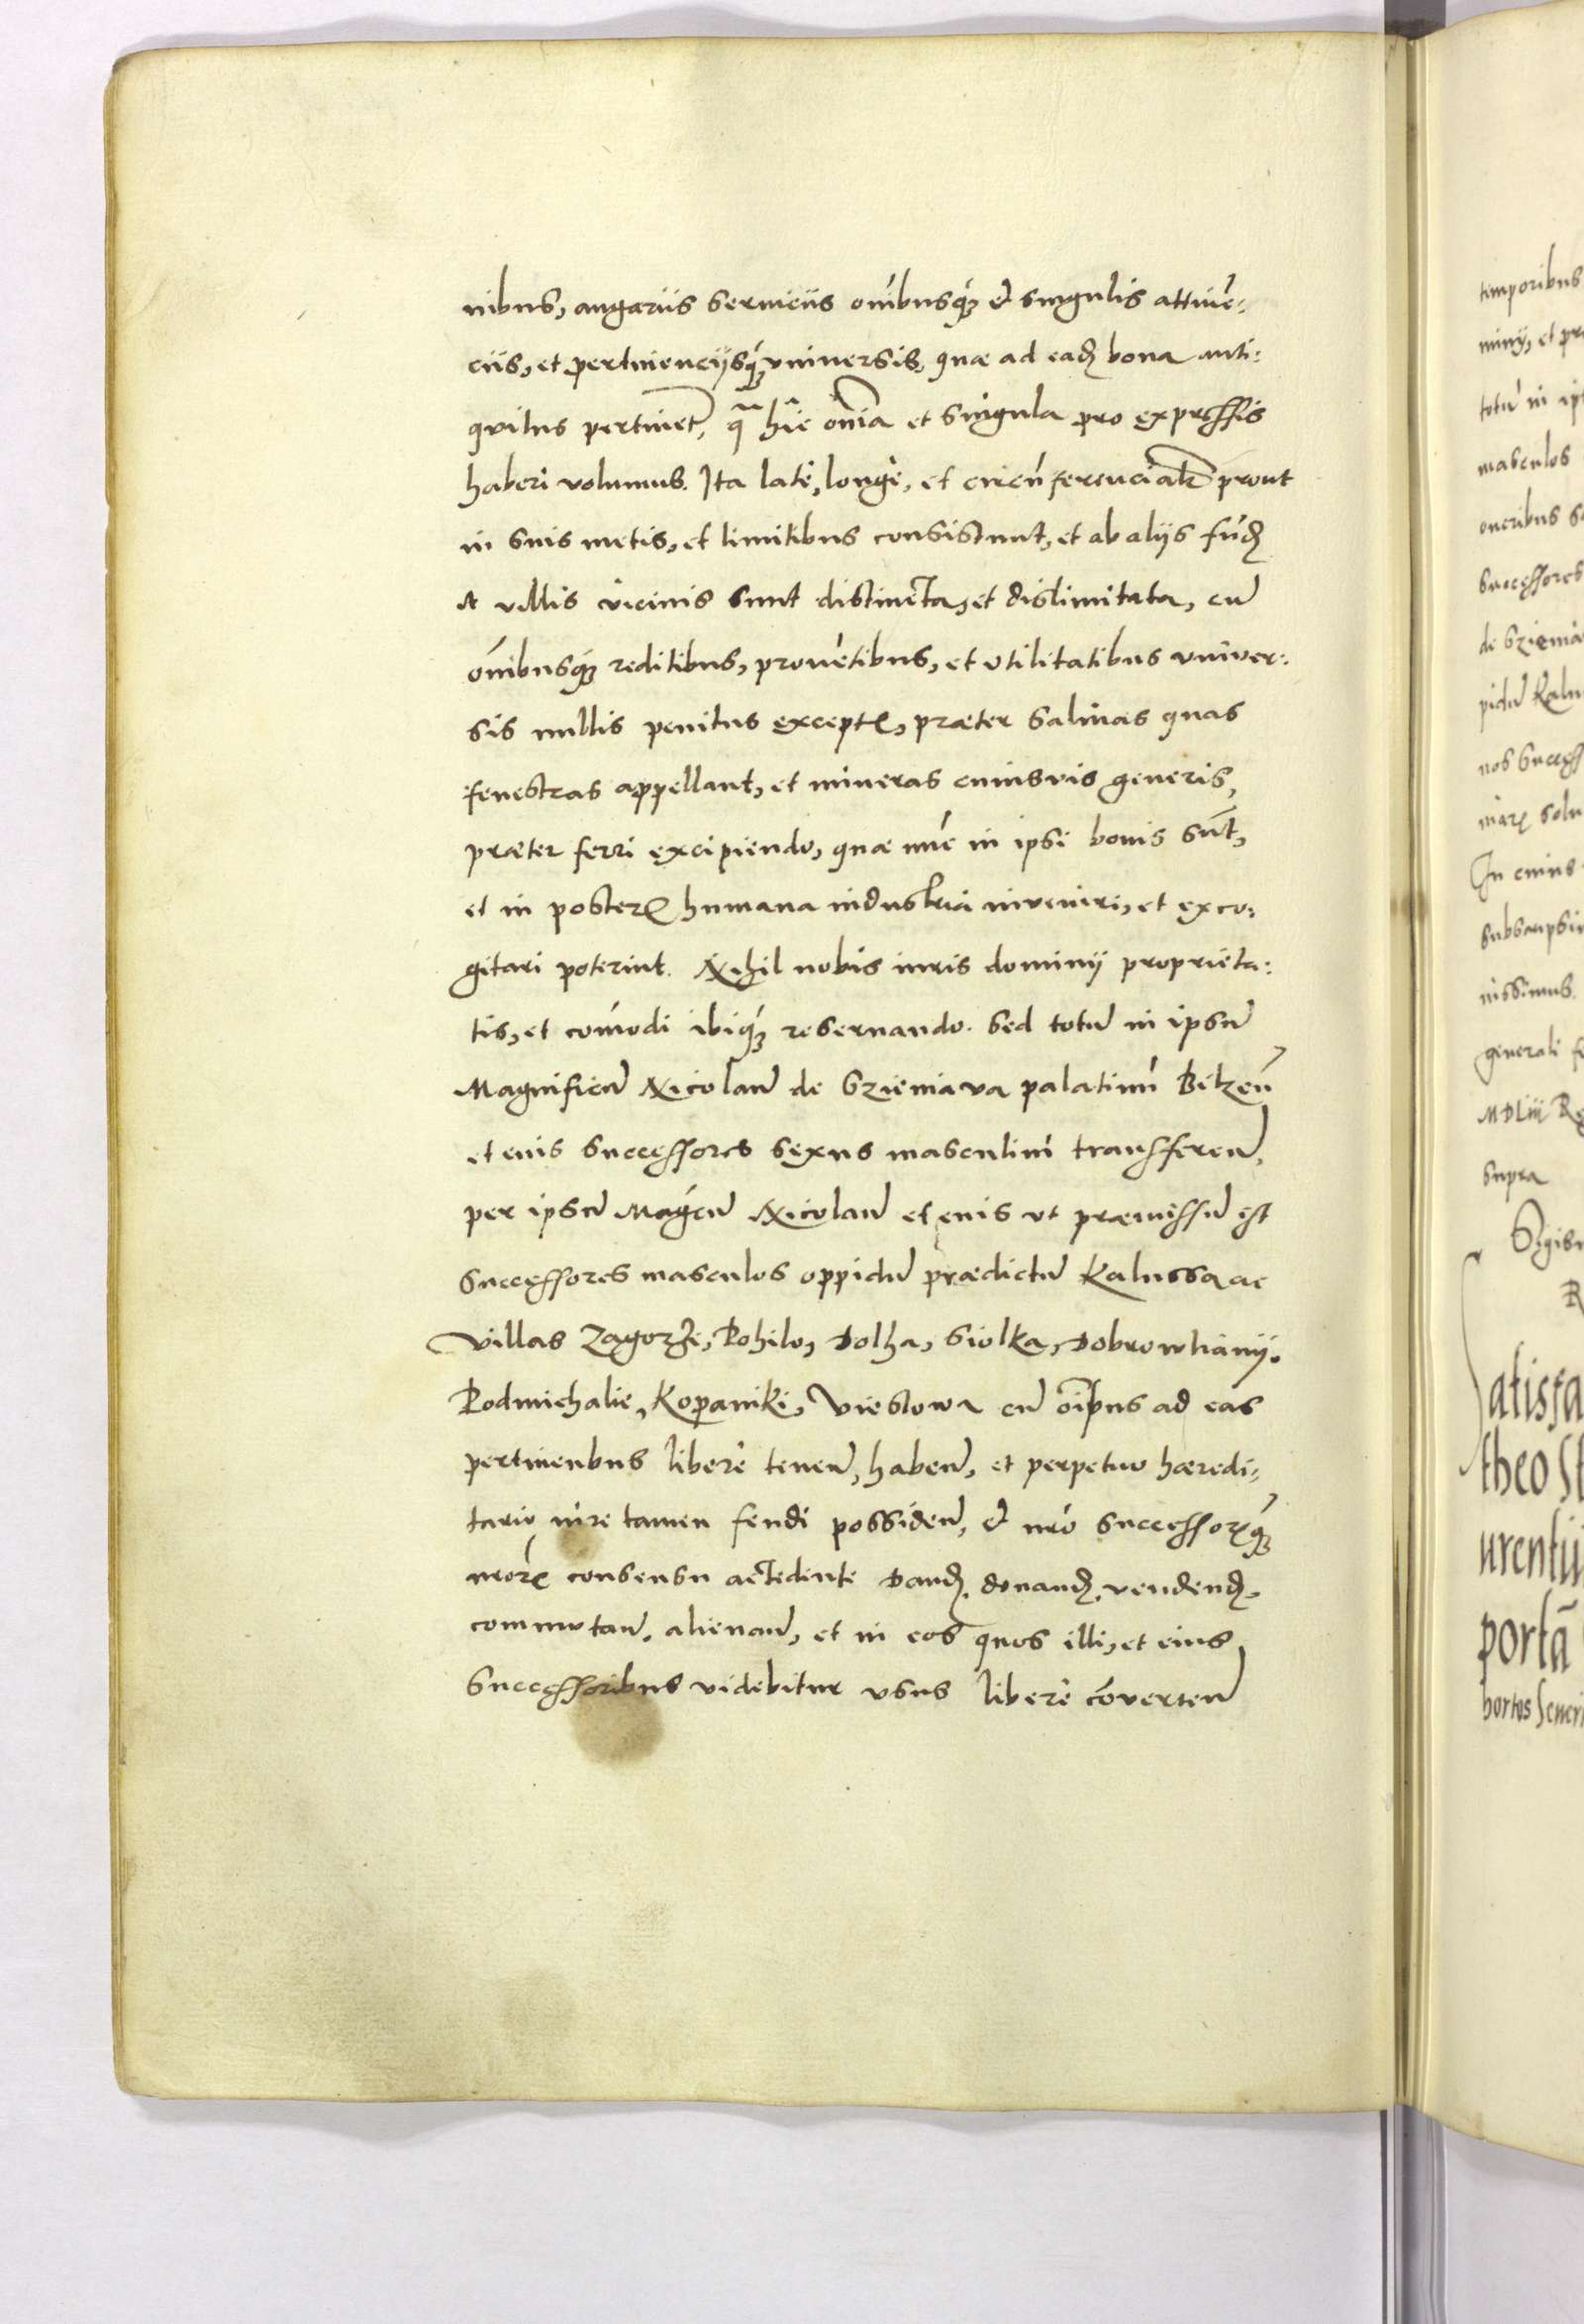 nibus, angariis serviciis oníbusq́ꝫ et singulis attinē-
ciis, et pertinencijsq́ꝫ universis, quae ad eadꝫ bona anti-
quitus pertinet, q̃ hîc oñia et singula pro expressis
haberi volumus. Ita latè, longè, et circūferencialr prout
in suis metis, et limitibus consistunt, et ab alijs fūdꝫ
et villis vicinis sunt distincta, et dislimitata, cū
oḿibusq́ꝫ reditibus, provētibus, et utilitatibus univer-
sis nullis penitus exceptꝭ, praeter salinas quas
fenestras appellant, et mineras cuiusvis generis,
praeter ferri excipiendo, quae nūc in ipsi bonis sūt,
et in posterꝝ humana industria inveniri, et exco-
gitari poterint. Nihil nobis iuris dominij proprieta-
tis, et com̄odi ibiq́ꝫ reservando. Sed totū in ipsū
Magnificū Nicolaū de Szieniava palatinū Belzeñ
et eius successores sexus masculini transferen̄,
per ipsū Magcū Nicolaū et eius ut praemissū est
successores masculos oppidū praedictū Kalussa ac
Villas Zagorze, Pohilo, Dolha, Siolka, Dobrowlianij.
Podmichalie, Kopanki, Viestowa cū oībus ad eas
pertinenbus liberè tenen̄, haben̄, et perpetuo haeredi-
tario iure tamen feudi possiden̄, et nr̄o successorꝝq́ꝫ
nr̄orꝝ consensu accedente dandꝫ, donandꝫ, vendendꝫ.
commutan̄, alienan̄, et in eos quos illi, et eius
successoribus videbitur usus liberè cōverten̄
temporibus
totū in ip
masculos
oneribus
successores
de Szienia
pidū Kalu
nos success
In cuius
subscripsi
nissimus.
generali
MDLiii
supra
Sigis
atisfa
theo St
urentij
portā
hortos